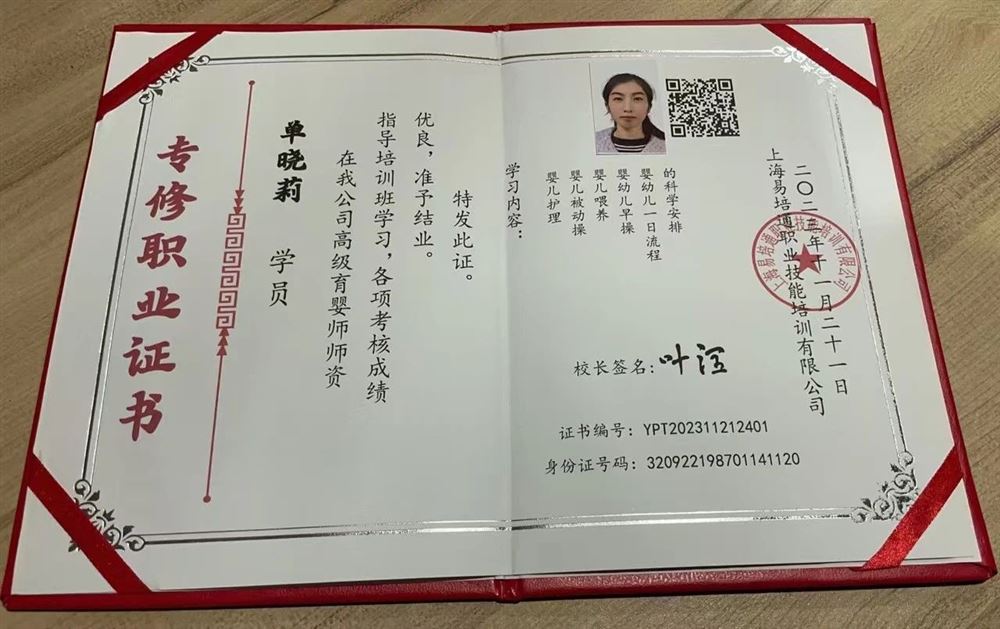 专修职业证书
单晓莉 学员
在我公司高级育婴师师资
指导培训班学习，各项考核成绩
优良，准予结业。
特发此证。
学习内容：
婴儿护理
婴儿被动操
婴儿喂养
婴幼儿早操
婴幼儿一日流程
的科学安排
上海易培通职业技能培训有限公司
二〇二三年十一月二十一日
上海易培通职业技能培训有限公司
校长签名：叶
证书编号：YPT202311212401
身份证号码：320922198701141120